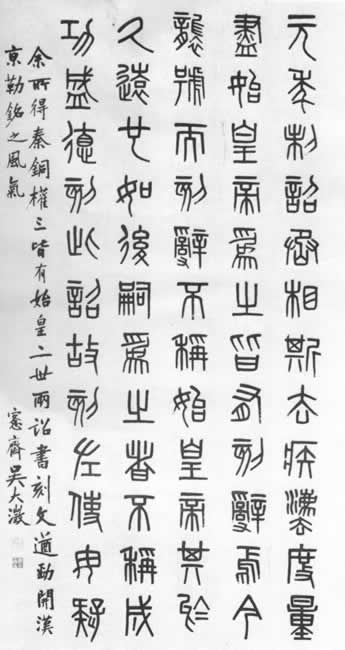 元年制詔丞相斯去疾灋度量
盡始皇帝爲之皆有刻辭焉今
襲號而刻辭不稱始皇帝其於
久遠也如後嗣爲之者不稱成
功盛德刻此詔故刻左使毋疑
余所得秦銅權三皆有始皇二世兩詔書刻文遒勁開漢
京勒銘之風氣 愙齋吳大澂